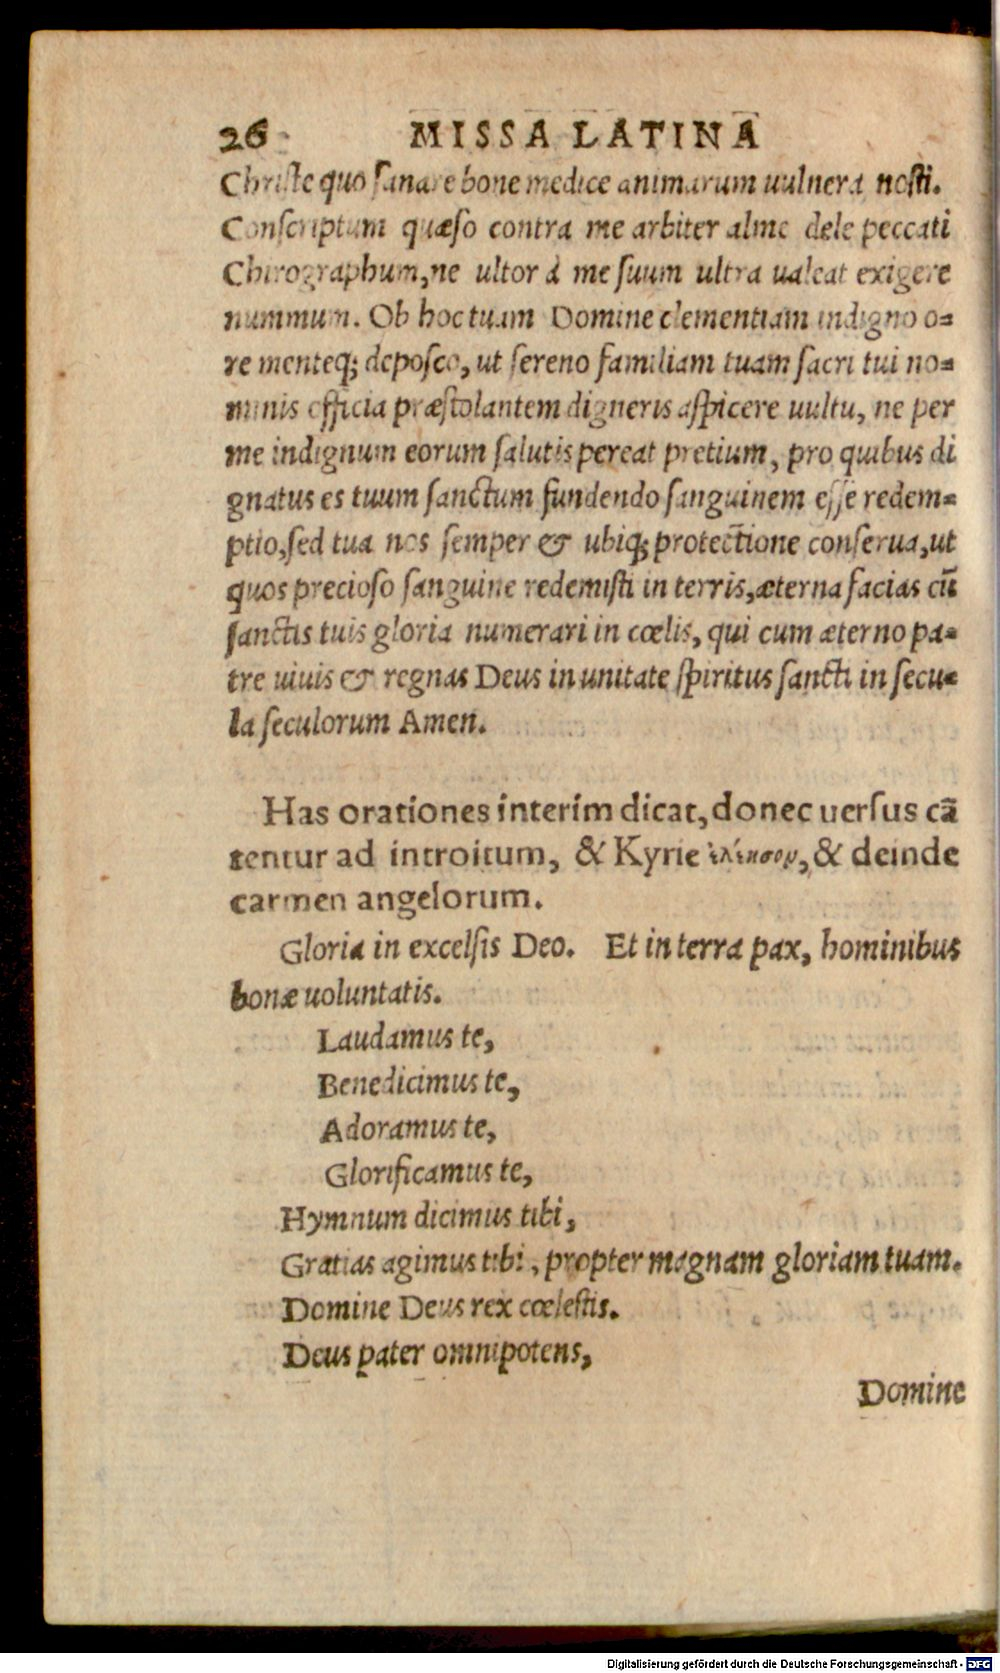 26 MISSA LATINA
Christe quo sanare bone medice animarum uulnera nosti.
Conscriptum quæso contra me arbiter alme dele peccati
Chirographum, ne ultor à me suum ultra ualeat exigere
nummum. Ob hoc tuam Domine clementiam indigno o-
re menteq; deposco, ut sereno familiam tuam sacri tui no-
minis officia præstolantem digneris aspicere uultu, ne per
me indignum eorum salutis pereat pretium, pro quibus di
gnatus es tuum sanctum fundendo sanguinem esse redem-
ptio, sed tua nos semper & ubiq; protectiōne conserua, ut
quos precioso sanguine redemisti in terris, æterna facias cū
sanctis tuis gloria numerari in cœlis, qui cum æterno pa-
tre uiuis & regnas Deus in unitate spiritus sancti in secu-
la seculorum Amen.
Has orationes interim dicat, donec uersus cā
tentur ad introitum, & Kyrie ἐλέησον, & deinde
carmen angelorum.
Gloria in excelsis Deo. Et in terra pax, hominibus
bonæ uoluntatis.
Laudamus te,
Benedicimus te,
Adoramus te,
Glorificamus te,
Hymnum dicimus tibi,
Gratias agimus tibi, propter magnam gloriam tuam.
Domine Deus rex cœlestis.
Deus pater omnipotens,
Domine
Digitalisierung gefördert durch die Deutsche Forschungsgemeinschaft - DFG